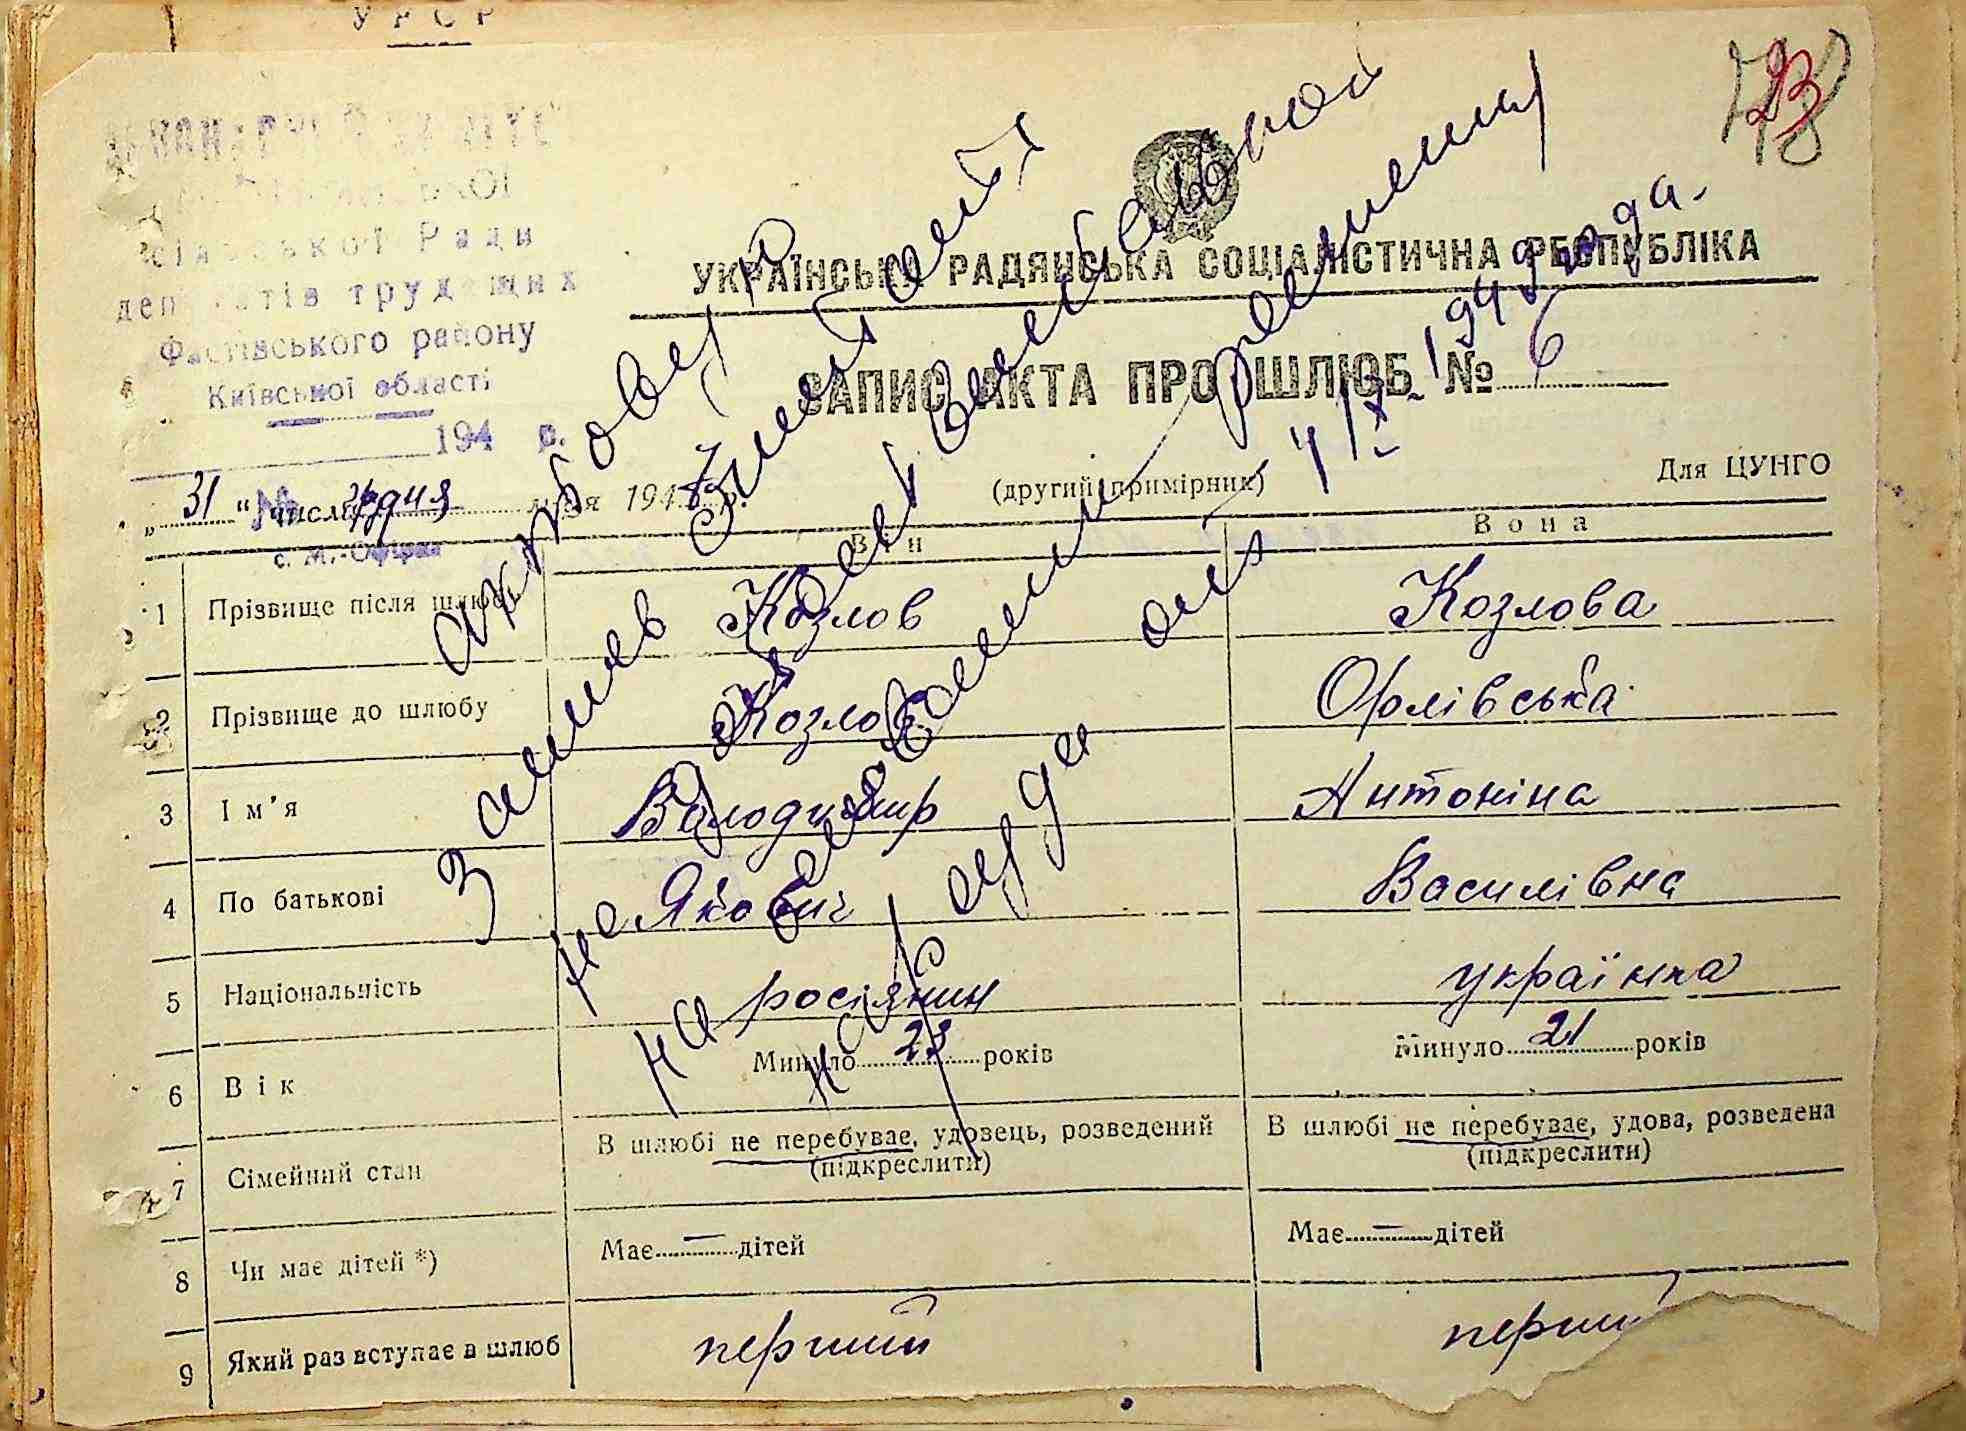 УРСР
23
78
сільської Ради
депутатів трудящих
Фастівського району
Київської області
194 р.
УКРАЇНСЬКА РАДЯНСЬКА СОЦІАЛІСТИЧНА РЕСПУБЛІКА
ЗАПИС АКТА ПРО ШЛЮБ № 6
(другий примірник) Для ЦУНГО
„31“ числа грудня м-ця 1947 р.
Він Вона
1 Прізвище після шлюбу Козлов Козлова
2 Прізвище до шлюбу Козлов Орлівська
3 Ім'я Володимир Антоніна
4 По батькові Якович Василівна
5 Національність росіянин українка
6 Вік Минуло 23 років Минуло 21 років
7 Сімейний стан В шлюбі не перебуває, удовець, розведений (підкреслити) В шлюбі не перебуває, удова, розведена (підкреслити)
8 Чи має дітей *) Має — дітей Має — дітей
9 Який раз вступає в шлюб перший перши
актовый
Запись
на
решения
нар суда от 4/X 1949 года.